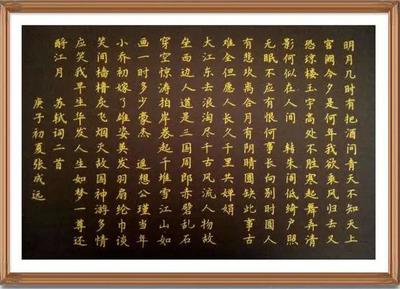 明月几时有把酒问青天不知天上
宫阙今夕是何年我欲乘风归去又
恐琼楼玉宇高处不胜寒起舞弄清
影何似在人间 转朱阁低绮户照
无眠不应有恨何事长向别时圆人
有悲欢离合月有阴晴圆缺此事古
难全但愿人长久千里共婵娟
大江东去浪淘尽千古风流人物故
垒西边人道是三国周郎赤壁乱石
穿空惊涛拍岸卷起千堆雪江山如
画一时多少豪杰 遥想公瑾当年
小乔初嫁了雄姿英发羽扇纶巾谈
笑间樯橹灰飞烟灭故国神游多情
应笑我早生华发人生如梦一尊还
酹江月 苏轼词二首
庚子初夏张成远